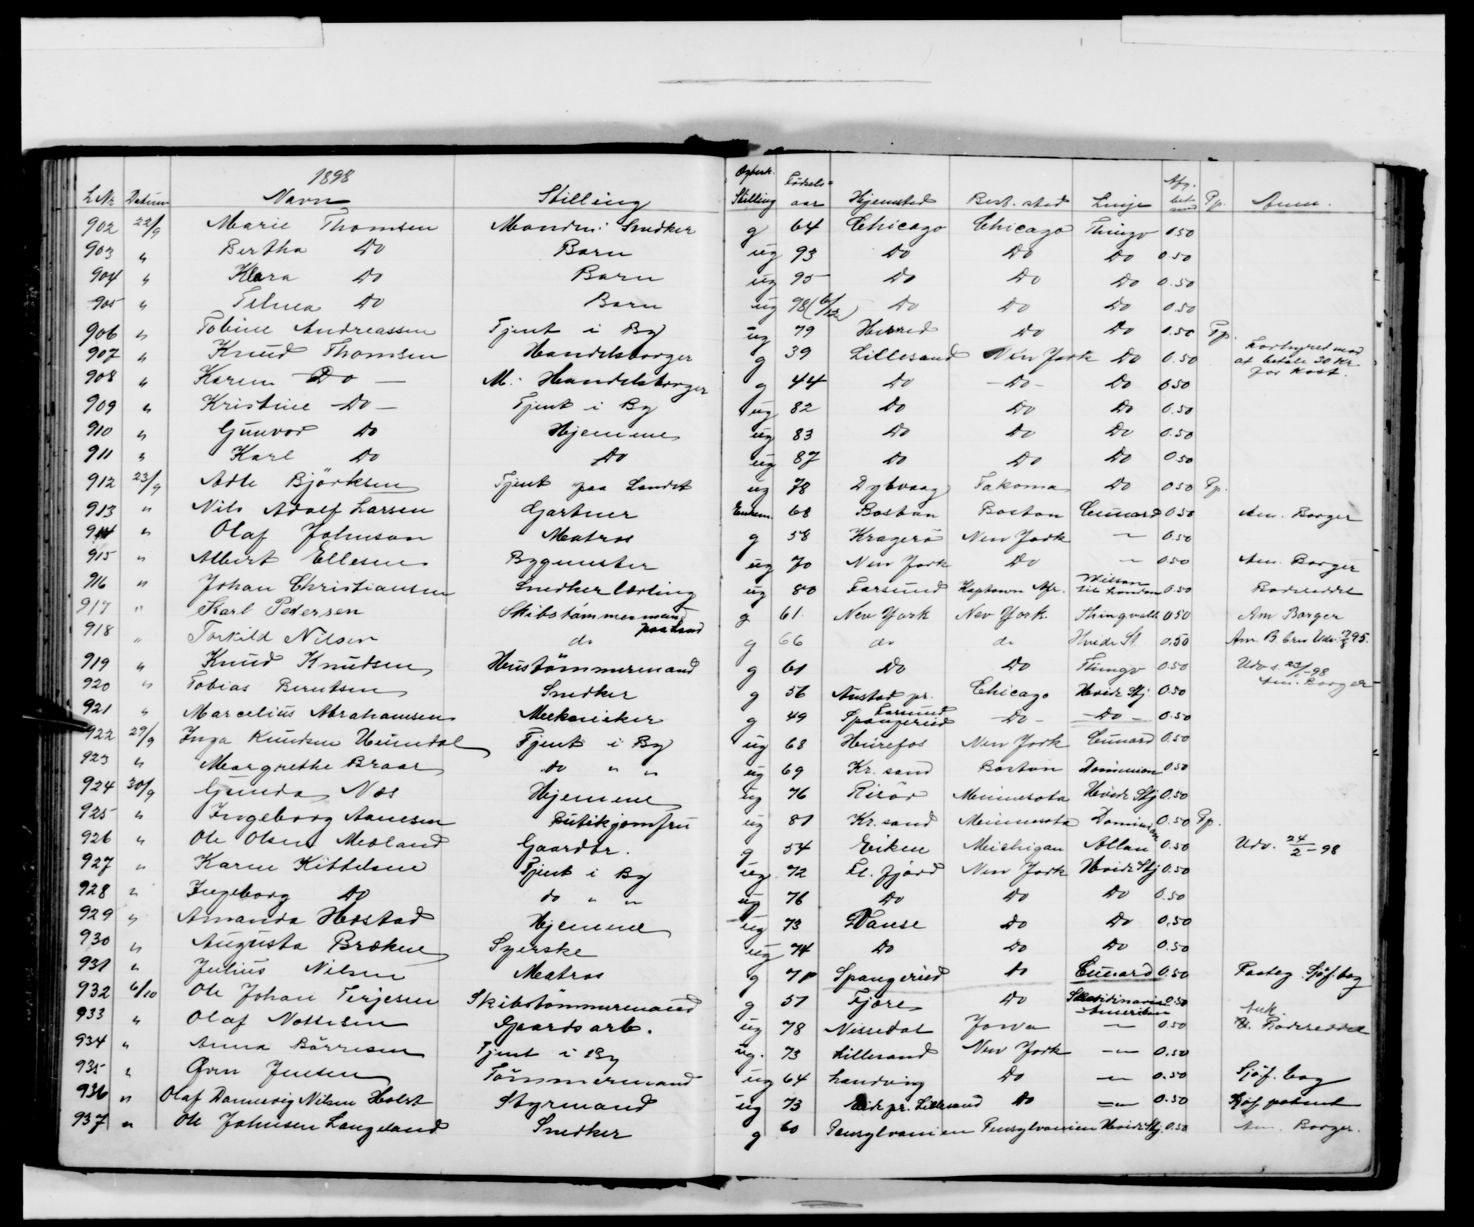 1898
L.Nr Datum Navn Stilling Stilling Fødsels- aar Hjemsted Best. sted Linje Pp. Anm.
902 22/9 Marie Thomsen Mand: Snedker g 64 Chicago Chicago Thingv 0.50
903 " Bertha Do Barn ug 93 Do Do Do 0.50
904 " Klara Do Barn ug 95 Do Do Do 0.50
905 " Do Barn ug 98 Do Do Do 0.50
906 " Tobine Andreassen Tjent i By ug 79 Herred Do Do 0.50 Pp.
907 " Knud Thomsen Handelsborger g 39 Lillesand New York Do 0.50 Forhyret mod at betale 30 kr. for Kost.
908 " Karen Do — M: Handelsborger g 44 Do - Do - Do 0.50
909 " Kristine - Do - Tjent i By ug 82 Do Do Do 0.50
910 " Gunvor Do Hjemme ug 83 Do Do Do 0.50
911 " Karl Do Do ug 87 Do Do Do 0.50
912 23/9 Björksen Tjent paa Landet ug 78 Dybvaag Takoma Do 0.50 Pp.
913 " Nils Adolf Larsen Gartner Enkem. 68 Boston Boston Cunard 0.50 Am. Borger
914 " Olaf Johnson Matros g 58 Kragerö New York — " — 0.50
915 " Albert Ellesen Bygmester ug 70 New York Do — " — 0.50 Am. Borger
916 " Johan Christiansen Snedkerlærling ug 80 Farsund Kaptown Afr. Wilson til London 0.50
917 " Karl Pedersen Skibstømmermand paa Land g 61. New York New York Thingvalla 0.50 Am Borger
918 " Torkild Nilsen do g 66 do do Hvide St 0.50
919 " Knud Knudsen Hustömmermand g 61 Do Do Thingv 0.50 Udv. 23/1-98 Am. Borger
920 " Tobias Berntsen Snedker g 56 Austad pr. Farsund Chicago Hvide Stj 0.50
921 " Marcelius Abrahamsen Mekaniker g 49 Spangereid - Do - - Do - 0.50
922 29/9 Inga Knudsen Tjent i By ug 68 New York Cunard 0.50
923 " Margrethe Braar do " " ug 69 Kr. sand Boston Dominion 0.50
924 30/9 Gunda Næs Hjemme ug 76 Risör Minnesota Hvide Stj 0.50
925 " Ingeborg Aanesen Butikjomfru ug 81 Kr. sand Minnesota Dominion 0.50 Pp.
926 " Ole Olsen Gaardbr. g 54 Eiken Michigan Allan 0.50 Udv. 24/2-98
927 " Karen Kittelsen Tjent i By ug. 72 Fl. fjord New York Hvide Stj 0.50
928 " Ingeborg Do do " " ug 76 Do Do Do 0.50
929 " Amanda Hestad Hjemme ug 73 Vanse Do Do 0.50
930 " Augusta Brækne Syerske ug 74 Do Do Do 0.50
931 " Julius Nilsen Matros g 71 Spangereid Do Cunard 0.50 Sjöf. bog
932 6/10 Ole Johan Terjesen Skibstömmermand g 57 Fjære Do Skandinavia Amerikan 0.50
933 " Olaf Gaardsarb. ug 78 Nissedal Jowa — " — 0.50
934 " Anna Börresen Tjent i By ug. 73 Lillesand New York — " — 0.50
935 " Jensen Tömmermand ug 64 Landvig Do — " — 0.50 Sjöf. bog
936 " Olaf Dannevig Nilsen Holst Styrmand ug 73 pr. Lillesand Do — " — 0.50
937 " Ole Johnsen Langeland Snedker g 60 Pensylvanien Pensylvanien Hvide Stj. 0.50 Am. Borger.